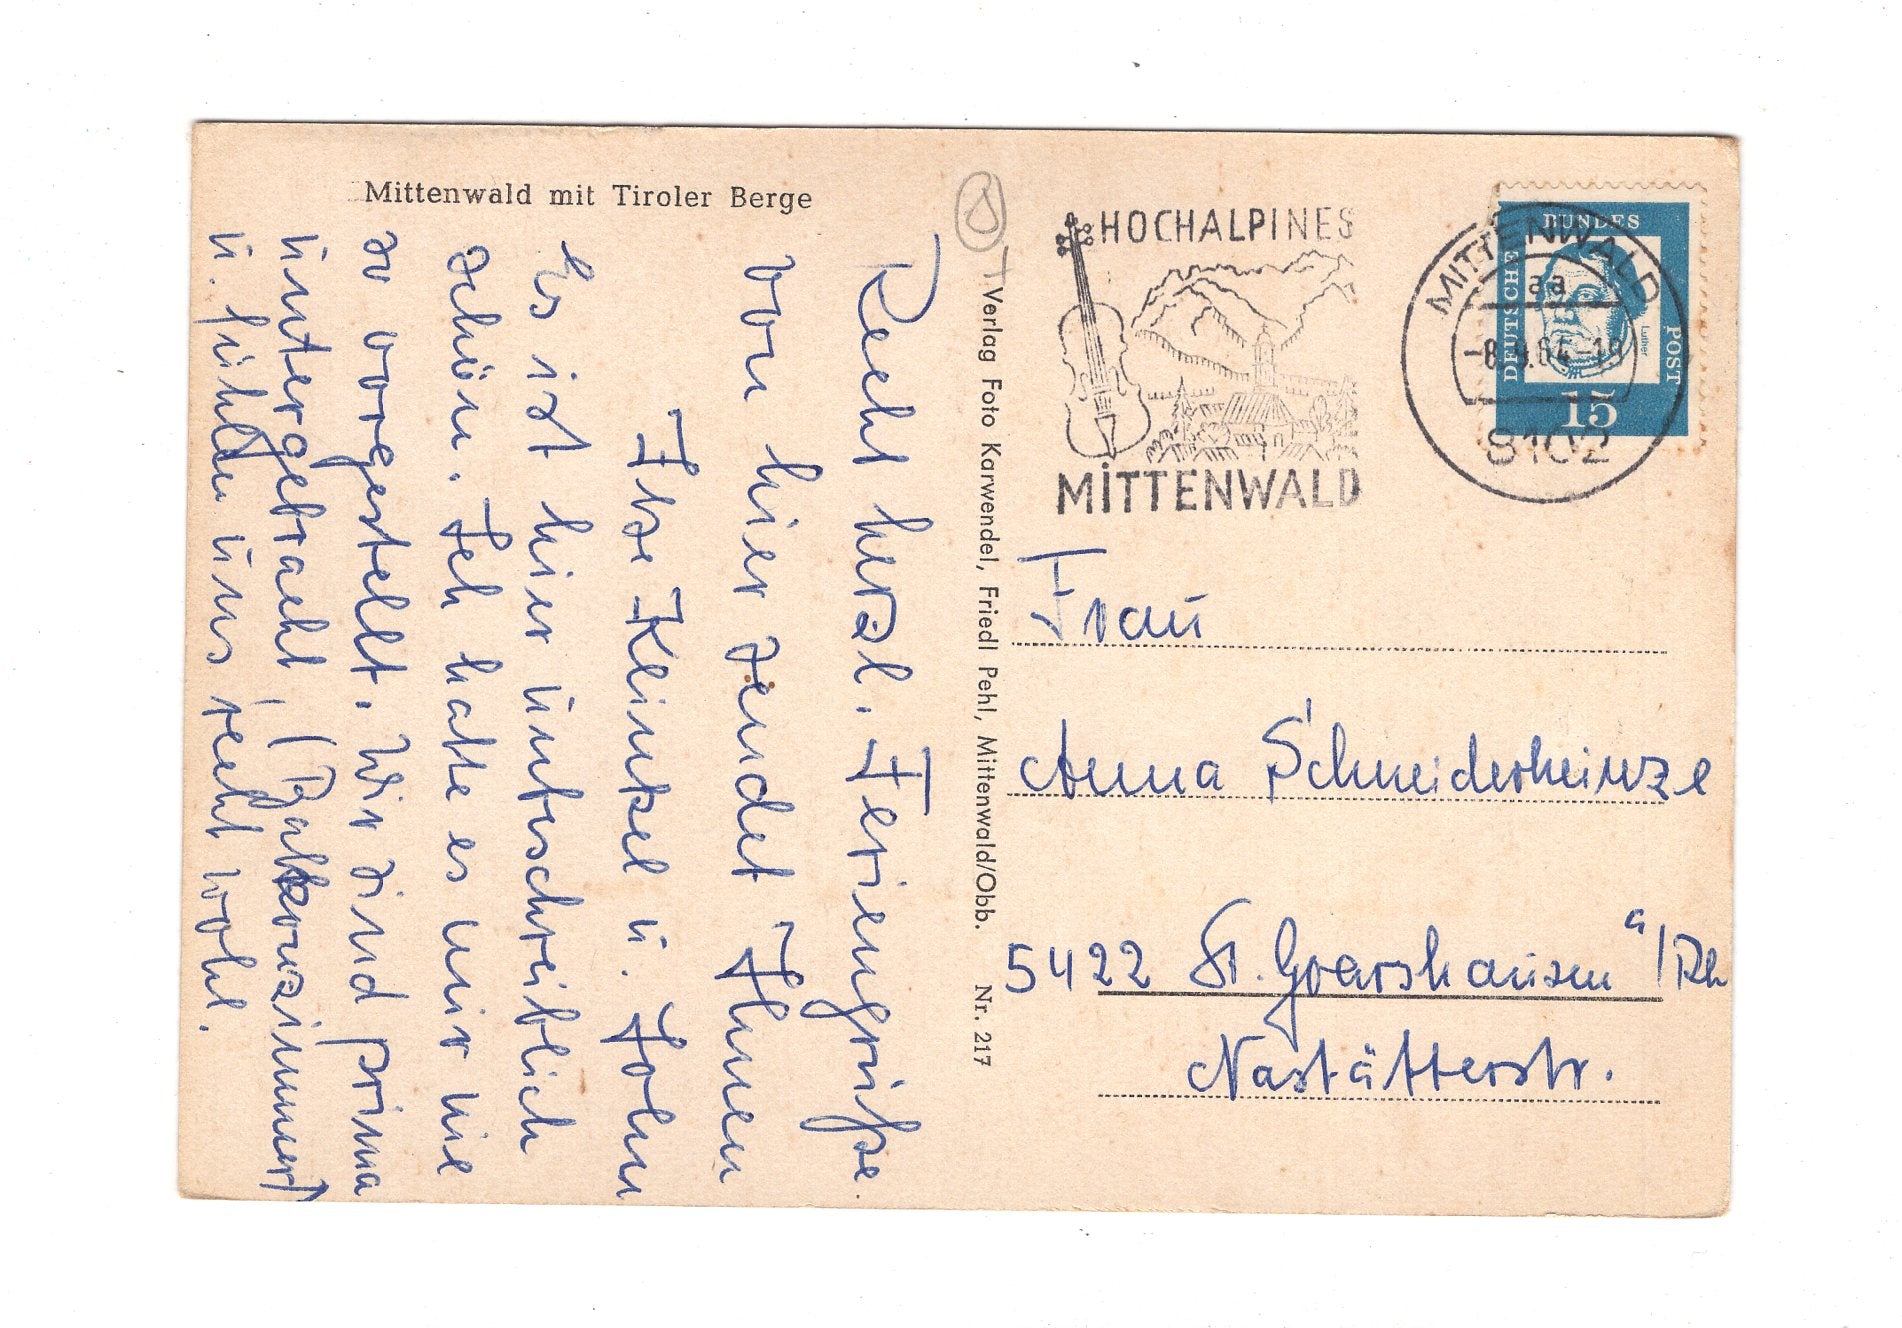 Mittenwald mit Tiroler Berge
Recht herzl. Feriengrüße
von hier sendet Ihnen
Ilse Keinkel u. Sohn
Es ist hier unbeschreiblich
schön. Ich hatte es mir nie
so vorgestellt. Wir sind prima
untergebracht, (Balkonzimmer)
u. fühlen uns recht wohl.
Verlag Foto Karwendel, Friedl Pehl, Mittenwald/Obb. Nr. 217
HOCHALPINES
MITTENWALD
MITTENWALD
aa
64-18
8102
DEUTSCHE BUNDESPOST
Luther
15
Frau
Anna Schneiderheinze
5422 St. Goarshausen a/Rh
Nastätterstr.